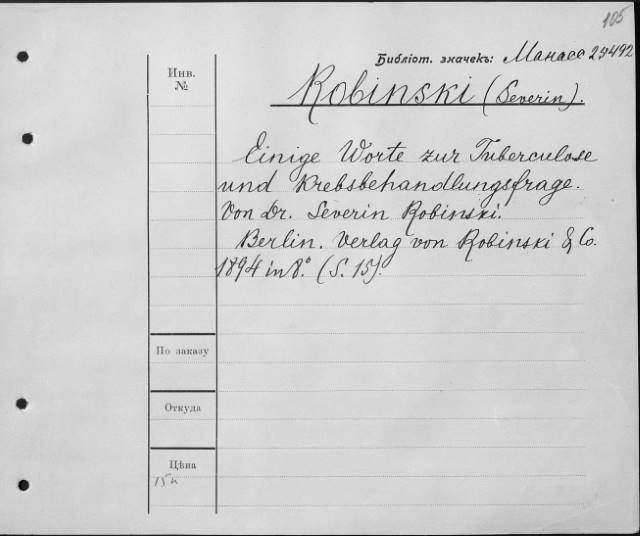 105
Библіот. значекъ: Манасс 23492
Инв.
№
Robinski (Severin).
Einige Worte zur Tuberculose
und Krebsbehandlungsfrage.
Von Dr. Severin Robinski.
Berlin. Verlag von Robinski & Co.
1894 in 8.° (S. 15).
По заказу
Откуда
Цѣна
15к